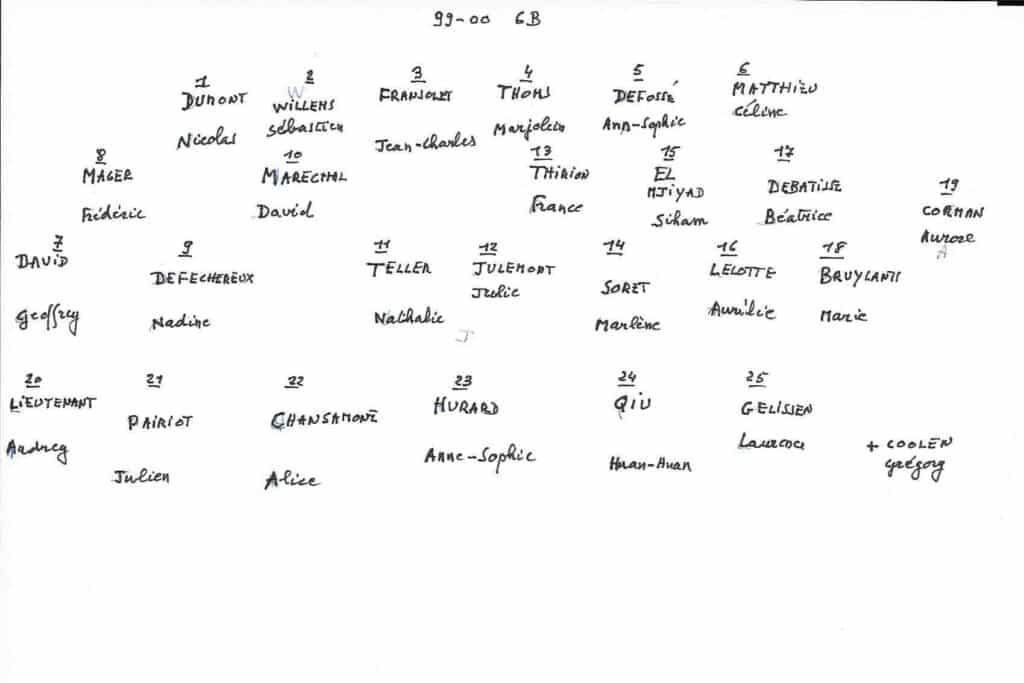 99-00 6B
1 2 3 4 5 6
DUMONT WILLEMS FRANSOLET THOMS DEFOSSÉ MATTHIEU
Nicolas Sébastien Jean-Charles Marjolein Ann-Sophie Céline
8 10 13 15 17 19
MAGER MARECHAL THIRION EL MJIYAD DEBATISSE CORMAN
Frédéric David France Siham Béatrice Aurore
7 9 11 12 14 16 18
DAVID DEFECHEREUX TELLER JULEMONT SORET LELOTTE BRUYLANTS
Geoffrey Nadine Nathalie Julie Marlène Aurélie Marie
20 21 22 23 24 25
LIEUTENANT PAIRIOT CHANSAMONE HURARD QIU GELISSEN
Audrey Julien Alice Anne-Sophie Huan-Huan Laurence
+ COOLEN
Grégory